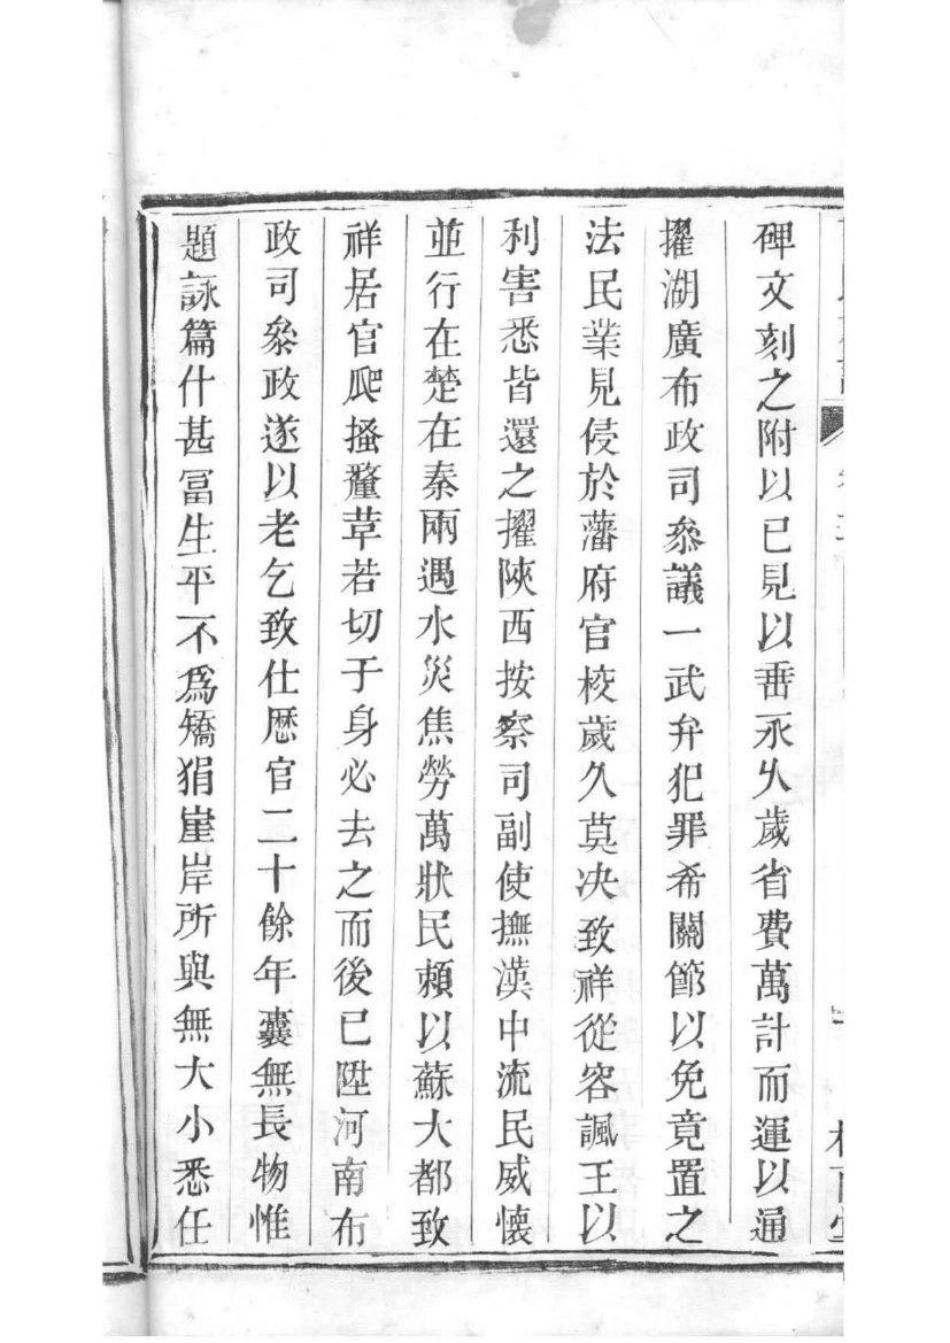 碑文刻之附以已見以垂永久歲省費萬計而運以通
擢湖廣布政司叅議一武弁犯罪希關節以免竟置之
法民業見侵於藩府官校歲久莫决致祥從容諷王以
利害悉皆還之擢陝西按察司副使撫漢中流民威懷
並行在楚在秦兩遇水災焦勞萬狀民賴以蘇大都致
祥居官爬搔釐草若切于身必去之而後已陞河南布
政司叅政遂以老乞致仕歷官二十餘年囊無長物惟
題詠篇什甚冨生平不爲矯狷崖岸所與無大小悉任